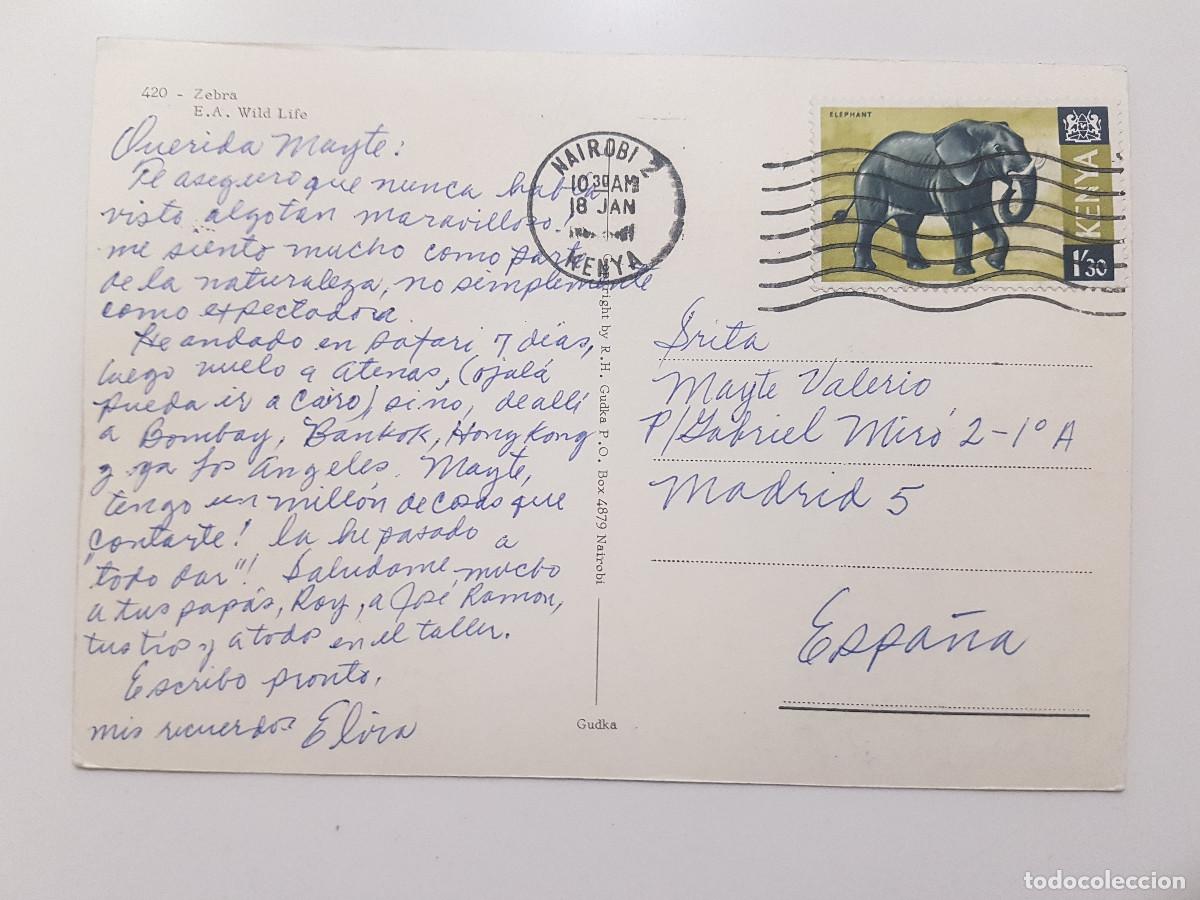 420 - Zebra
E.A. Wild Life
Querida Mayte:
Te aseguro que nunca había
visto algo tan maravilloso!
me siento mucho como parte
de la naturaleza, no simplemente
como expectadora.
He andado en safari 7 días,
luego vuelo a Atenas, (ojalá
pueda ir a Cairo) sino, de allí
a Bombay, Bankok, Hong Kong
y ya Los Angeles. Mayte,
tengo un millón de cosas que
contarte! la he pasado a
"todo dar"! Saludame mucho
a tus papás, Roy, a José Ramon,
tus tíos y a todos en el taller.
Escribo pronto,
mis recuerdos
NAIROBI 2
10 30 AM
18 JAN
KENYA
ELEPHANT
KENYA
1/30
Copyright by R. H. Gudka P. O. Box 4879 Nairobi
Gudka
Srita
Mayte Valerio
P/Gabriel Miró 2-1º A
Madrid 5
España
todocoleccion